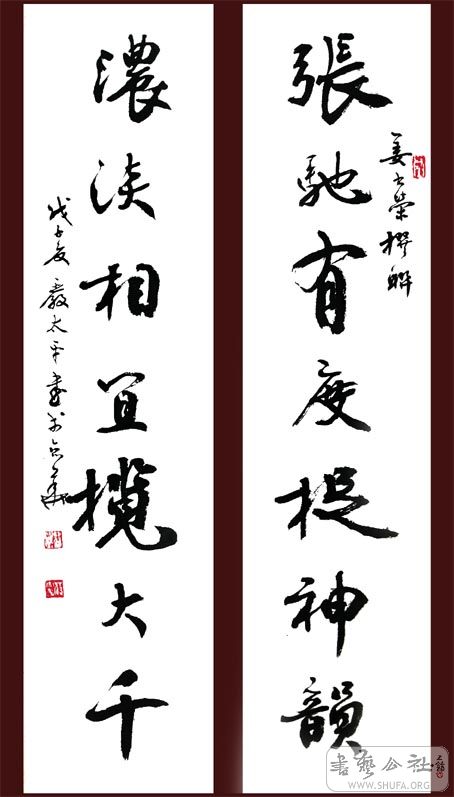 姜榮撰聯
張馳有度提神韻
濃淡相宜攬大千
戊子夏嚴太平書於京華
書藝公社
WWW.SHUFA.ORG